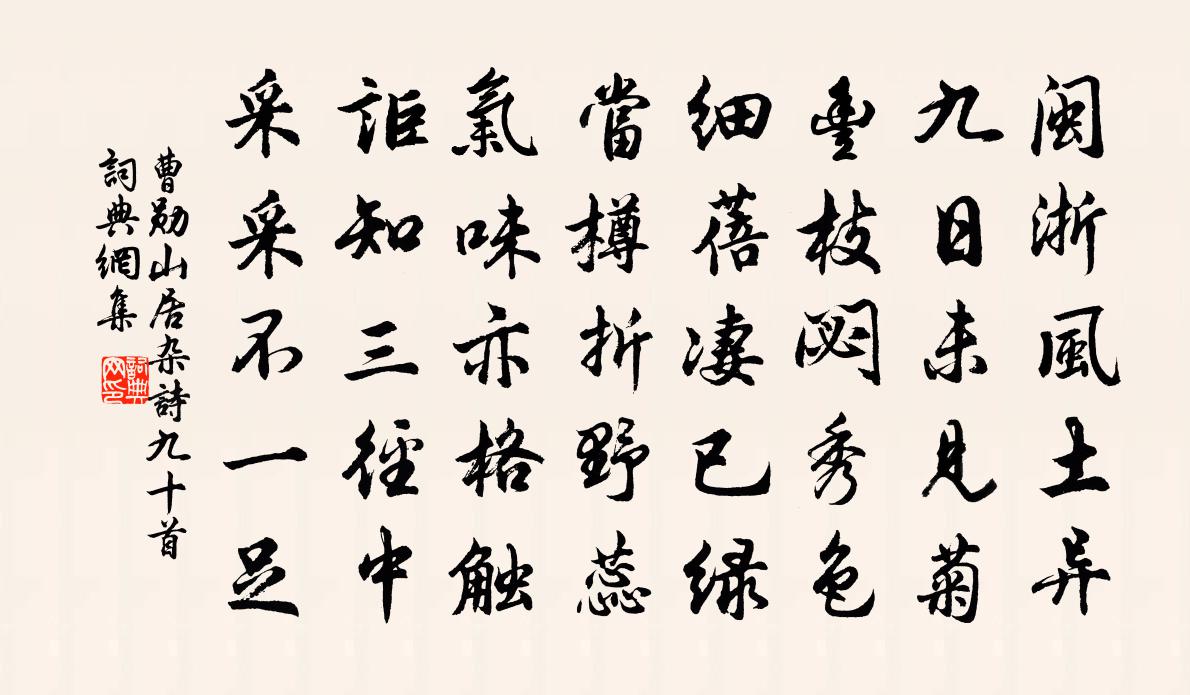 閩浙風土异
九日未見菊
豊枝閟秀色
細蓓凄已绿
當樽折野蕊
氣味亦格触
詎知三徑中
采采不一足
曹勛山居杂詩九十首
詞典網集
詞典网印